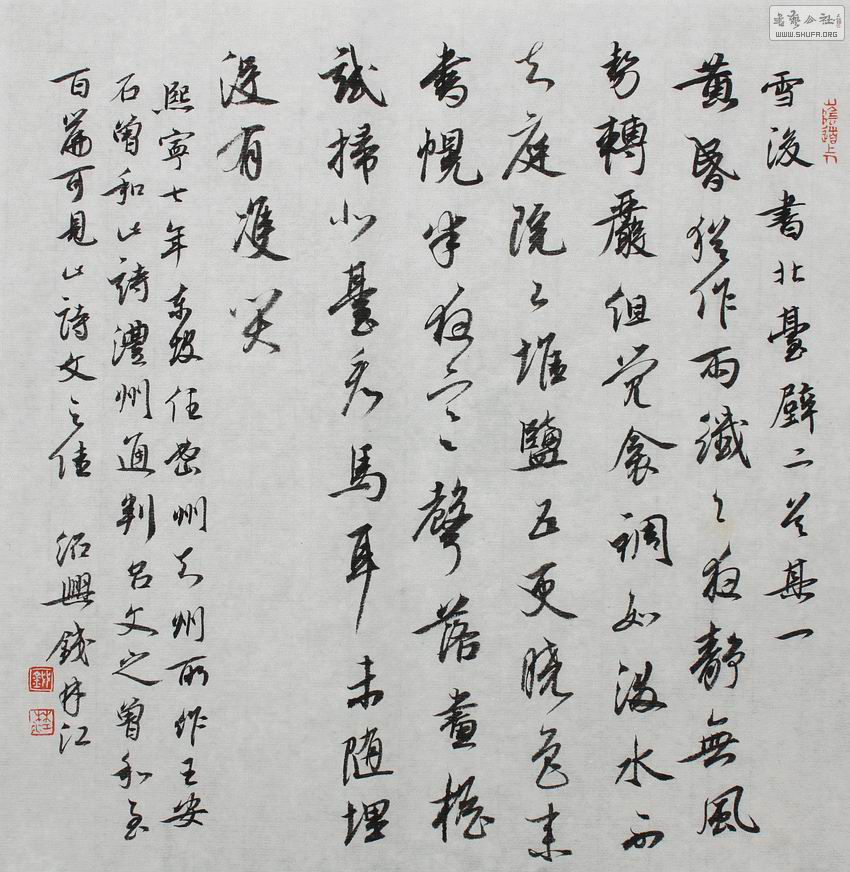 雪後書北臺壁二首其一
黄昏猶作雨纖々夜靜無風
勢轉嚴但覺衾裯如潑水不
知庭院已堆鹽五更曉色來
書幌半夜寒聲落畫檐
試掃北臺看馬耳未随埋
没有雙尖
熙寧七年東坡任密州知州所作王安
石曾和此詩澧州通判吕文之曾和至
百篇可見此詩文之佳 绍興錢林江
山陰道上
书艺公社
WWW.SHUFA.ORG